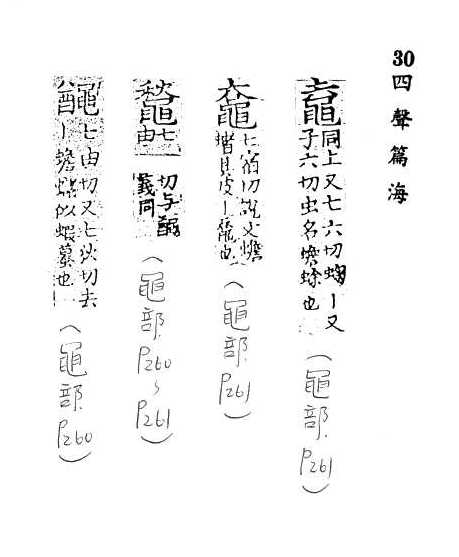 30四聲篇海
同上又七六切蝈丨又
子六切虫名蟾蜍也
(黽部.P261)
七宿切説文蟾
(黽部P261)
七
由
切与
義同
(黽部.P260~P261)
七由切又七狄切去
丨蟾蜍似蝦蟇也
(黽部.P260)